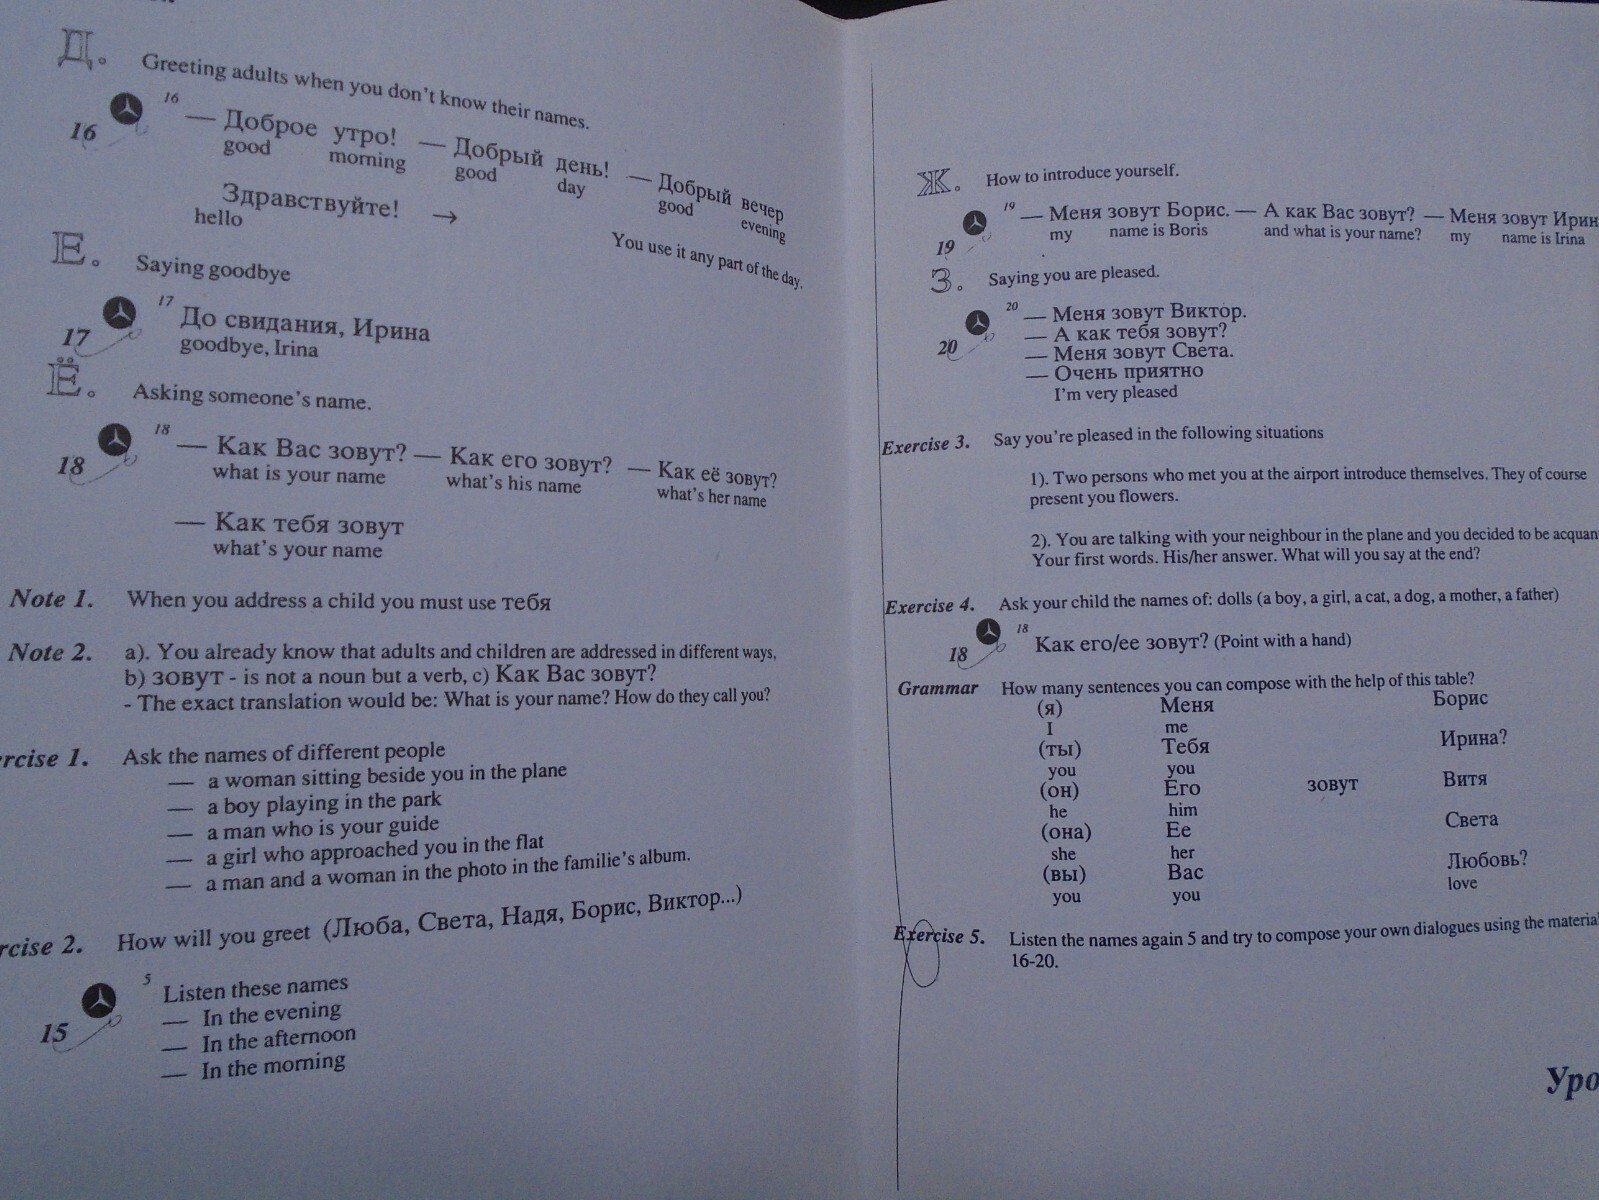 Д. Greeting adults when you don't know their names.
16 16 — Доброе утро! — Добрый день! — Добрый вечер
good morning good day good evening
Здравствуйте! →
hello
You use it any part of the day.
Е. Saying goodbye
17 17 До свидания, Ирина
goodbye, Irina
Ё. Asking someone's name.
18 18 — Как Вас зовут? — Как его зовут? — Как её зовут?
what is your name what's his name what's her name
— Как тебя зовут
what's your name
Note 1. When you address a child you must use тебя
Note 2. a). You already know that adults and children are addressed in different ways,
b) зовут - is not a noun but a verb, c) Как Вас зовут?
- The exact translation would be: What is your name? How do they call you?
rcise 1. Ask the names of different people
— a woman sitting beside you in the plane
— a boy playing in the park
— a man who is your guide
— a girl who approached you in the flat
— a man and a woman in the photo in the familie's album.
rcise 2. How will you greet (Люба, Света, Надя, Борис, Виктор...)
15 5 Listen these names
— In the evening
— In the afternoon
— In the morning
Ж. How to introduce yourself.
19 19 — Меня зовут Борис. — А как Вас зовут? — Меня зовут Ирин
my name is Boris and what is your name? my name is Irina
З. Saying you are pleased.
20 20 — Меня зовут Виктор.
— А как тебя зовут?
— Меня зовут Света.
— Очень приятно
I'm very pleased
Exercise 3. Say you're pleased in the following situations
1). Two persons who met you at the airport introduce themselves. They of course
present you flowers.
2). You are talking with your neighbour in the plane and you decided to be acquan
Your first words. His/her answer. What will you say at the end?
Exercise 4. Ask your child the names of: dolls (a boy, a girl, a cat, a dog, a mother, a father)
18 18 Как его/ее зовут? (Point with a hand)
Grammar How many sentences you can compose with the help of this table?
(я) Меня Борис
I me
(ты) Тебя Ирина?
you you
(он) Его зовут Витя
he him
(она) Ее Света
she her
(вы) Вас Любовь?
you you love
Exercise 5. Listen the names again 5 and try to compose your own dialogues using the materia
16-20.
Уро